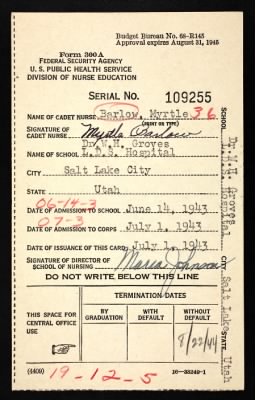 Budget Bureau No. 68-R145
Approval expires August 31, 1945
Form 300 A
FEDERAL SECURITY AGENCY
U. S. PUBLIC HEALTH SERVICE
DIVISION OF NURSE EDUCATION
SERIAL NO. 109255
NAME OF CADET NURSE Barlow, Myrtle 36
(PRINT OR TYPE)
SIGNATURE OF CADET NURSE Myrtle Barlow
Dr. W.H. Groves
NAME OF SCHOOL L.D.S. Hospital
CITY Salt Lake City
STATE Utah
06-14-3
DATE OF ADMISSION TO SCHOOL June 14, 1943
07-3
DATE OF ADMISSION TO CORPS July 1, 1943
DATE OF ISSUANCE OF THIS CARD July 1, 1943
SIGNATURE OF DIRECTOR OF SCHOOL OF NURSING Maria Johnson
DO NOT WRITE BELOW THIS LINE
THIS SPACE FOR CENTRAL OFFICE USE
TERMINATION DATES
BY GRADUATION
WITH DEFAULT
WITHOUT DEFAULT
8/22/44
(4409)
19-12-5
16-33249-1
SCHOOL Dr. W.H. Groves L.D.S. Hospital
CITY Salt Lake
STATE Utah